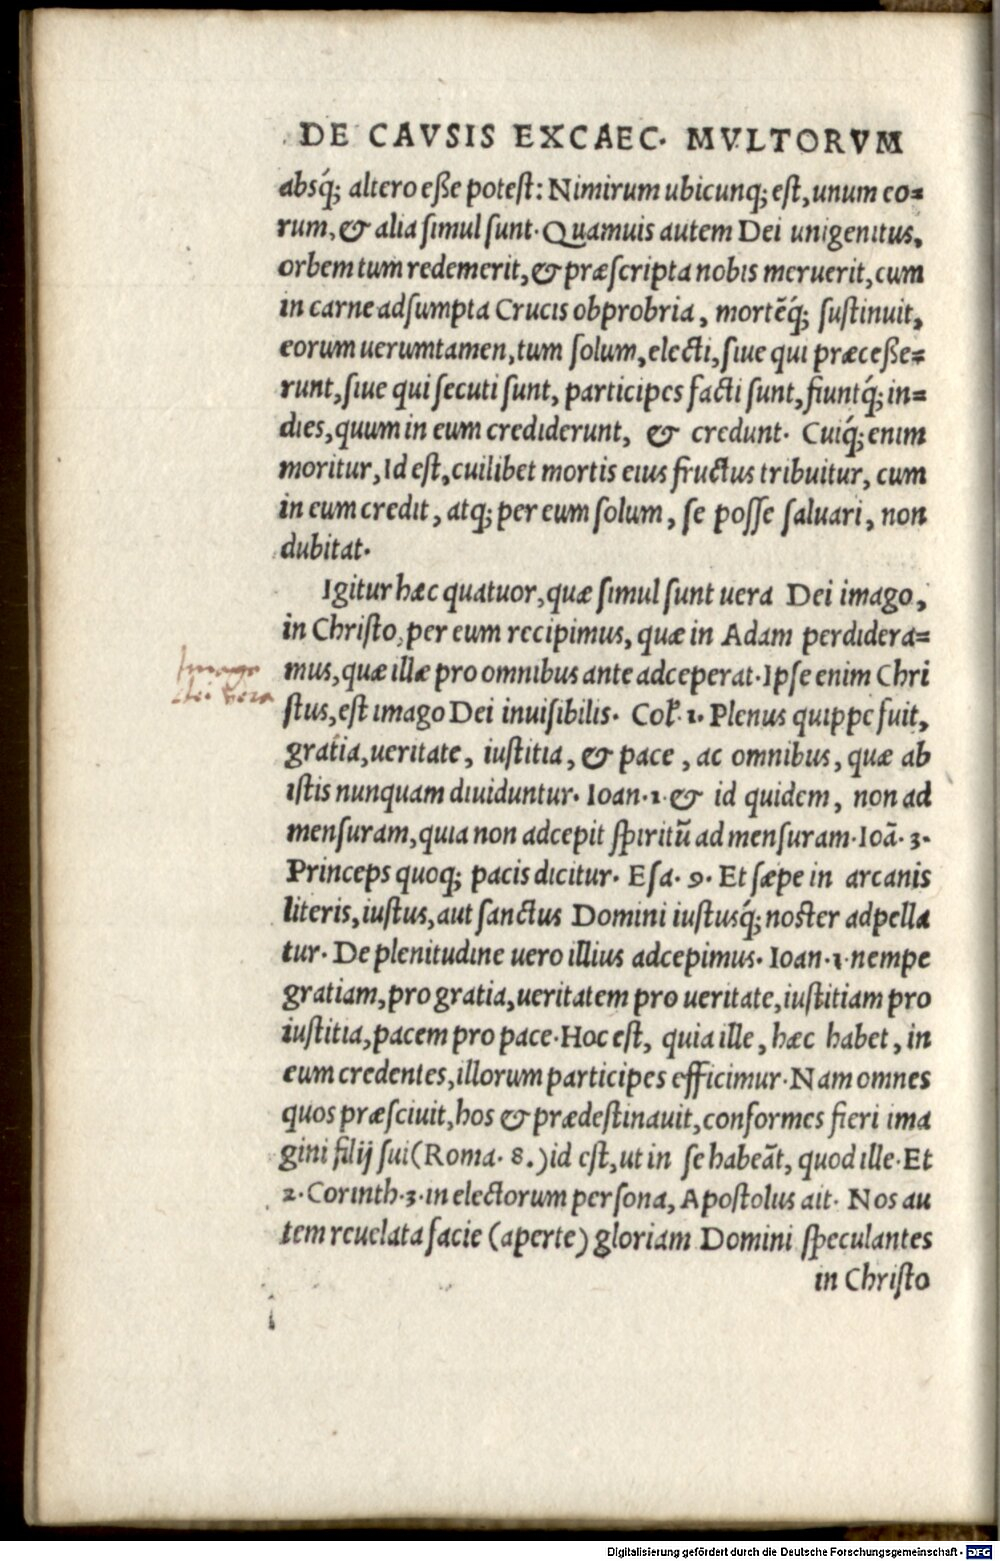 DE CAVSIS EXCAEC. MVLTORVM
absq́; altero eße potest: Nimirum ubicunq; est, unum eo=
rum, & alia simul sunt. Quamuis autem Dei unigenitus,
orbem tum redemerit, & præscripta nobis meruerit, cum
in carne adsumpta Crucis obprobria, mortẽq́; sustinuit,
eorum uerumtamen, tum solum, electi, siue qui præceße=
runt, siue qui secuti sunt, participes facti sunt, fiuntq́; in=
dies, quum in eum crediderunt, & credunt. Cuiq́; enim
moritur, Id est, cuilibet mortis eius fructus tribuitur, cum
in eum credit, atq; per eum solum, se posse saluari, non
dubitat.
Igitur hæc quatuor, quæ simul sunt uera Dei imago,
in Christo, per eum recipimus, quæ in Adam perdidera=
Imago
dei vera
mus, quæ illæ pro omnibus ante adceperat. Ipse enim Chri
stus, est imago Dei inuisibilis. Col. 1. Plenus quippe fuit,
gratia, ueritate, iustitia, & pace, ac omnibus, quæ ab
istis nunquam diuiduntur. Ioan. 1. & id quidem, non ad
mensuram, quia non adcepit spiritũ ad mensuram. Ioã. 3.
Princeps quoq; pacis dicitur. Esa. 9. Et sæpe in arcanis
literis, iustus, aut sanctus Domini iustusq́; noster adpella
tur. De plenitudine uero illius adcepimus. Ioan. 1. nempe
gratiam, pro gratia, ueritatem pro ueritate, iustitiam pro
iustitia, pacem pro pace. Hoc est, quia ille, hæc habet, in
eum credentes, illorum participes efficimur. Nam omnes
quos præsciuit, hos & prædestinauit, conformes fieri ima
gini filij sui (Roma. 8.) id est, ut in se habeãt, quod ille. Et
2. Corinth. 3. in electorum persona, Apostolus ait. Nos au
tem reuelata facie (aperte) gloriam Domini speculantes
in Christo
Digitalisierung gefördert durch die Deutsche Forschungsgemeinschaft - DFG